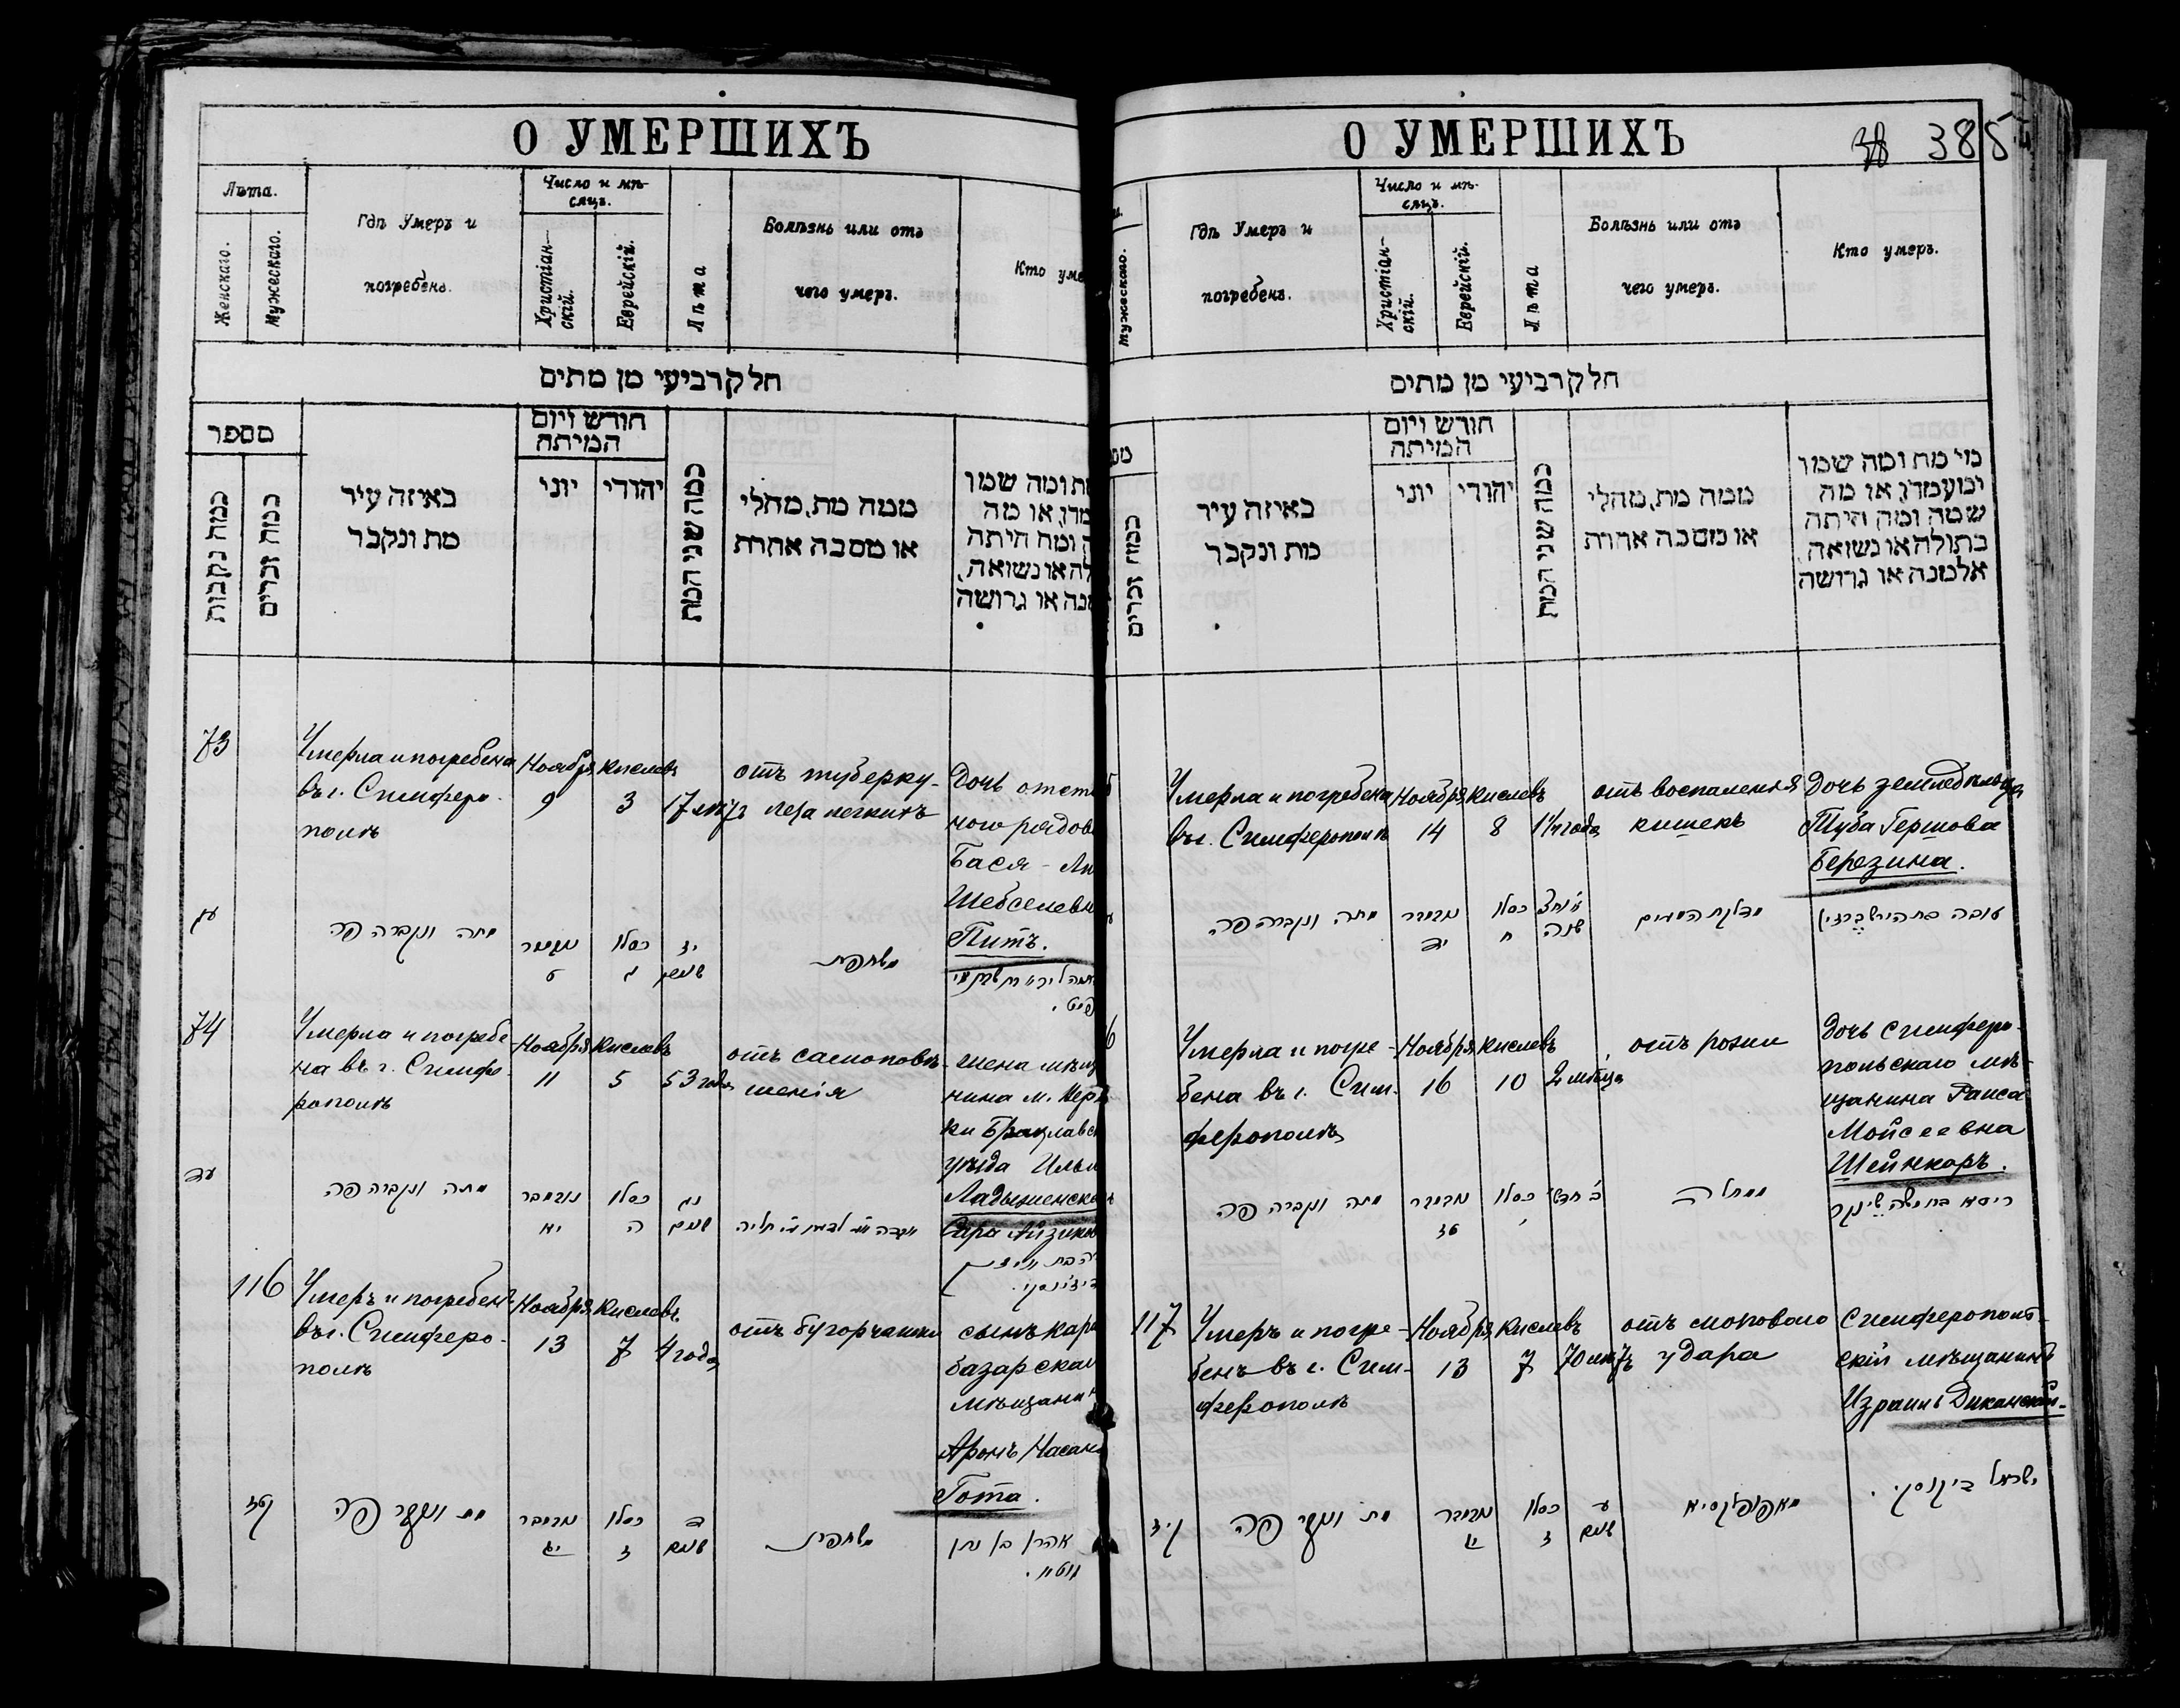 О УМЕРШИХЪ
Лѣта.
Женскаго.
Мужескаго.
Гдѣ Умеръ и
погребенъ.
Число и мѣ-
сяцъ.
Христіан-
скій.
Еврейскій.
Лѣта
Болѣзнь или отъ
чего умеръ.
Кто уме
חלק רביעי מן מתים
מספר
כמה נקבות
כמה זכרים
באיזה עיר
מת ונקבר
חודש ויום
המיתה
יוני
יהודי
כמה שני המת
ממה מת, מחלי
או מסבה אחרת
מת ומה שמו
מדו, או מה
ה ומה היתה
לה או נשואה,
מנה או גרושה
73
Умерла и погребена
въ г. Симферо-
полѣ
Ноября
9
Кислевъ
3
17 лѣтъ
отъ туберку-
леза легкихъ
Дочь отст
ного рядов
Бася - Ли
Шебселевн
Питъ.
עג
מתה ונקברה פה
נובמבר
ט
כסלו
ג
יז
שנים
משחפת
פיט.
74
Умерла и погребе-
на въ г. Симфе-
рополѣ
Ноября
11
Кислевъ
5
53 года
отъ самоповѣ-
шенія
жена мѣщ
нина м. Тер
ки Брацлавс
уѣзда Ильи
Ладыженско
Сара Айзико
עד
מתה ונקברה פה
נובמבר
יא
כסלו
ה
נג
שנים
116
Умеръ и погребенъ
въ г. Симферо-
полѣ
Ноября
13
Кислевъ
7
4 года
отъ бугорчатки
сынъ кара
базарскаг
мѣщанин
Аронъ Насан
Гота.
קטז
מת ונקבר פה
נובמבר
יג
כסלו
ז
ד
שנים
משחפת
אהרן בן נתן
גוטע.
О УМЕРШИХЪ
385
Мужескаго.
Гдѣ Умеръ и
погребенъ.
Число и мѣ-
сяцъ.
Христіан-
скій.
Еврейскій.
Лѣта
Болѣзнь или отъ
чего умеръ.
Кто умеръ.
חלק רביעי מן מתים
מס
כמה זכרים
באיזה עיר
מת ונקבר
חודש ויום
המיתה
יוני
יהודי
כמה שני המת
ממה מת, מחלי
או מסבה אחרת
מי מת ומה שמו
ומעמדו, או מה
שמה ומה היתה
בתולה או נשואה,
אלמנה או גרושה
5
Умерла и погребена
въ г. Симферополѣ
Ноября
14
Кислевъ
8
1 1/4 года
отъ воспаленія
кишекъ
Дочь земледѣльца
Туба Гершова
Березина.
מתה ונקברה פה
נובמבר
יד
כסלו
ח
שנה
מדלקת המעים
טובה בת הירש ברזין
6
Умерла и погре-
бена въ г. Сим-
ферополѣ
Ноября
16
Кислевъ
10
2 мѣсяца
отъ рожи
Дочь симферо-
польскаго мѣ-
щанина Раиса
Мойсеевна
Шейнкаръ.
מתה ונקברה פה
נובמבר
טז
כסלו
י
ב חדשי
ריסא בת משה שינקר
117
Умеръ и погре-
бенъ въ г. Сим-
ферополѣ
Ноября
13
Кислевъ
7
70 лѣтъ
отъ мозгового
удара
Симферополь-
скій мѣщанинъ
Израиль Диканскій.
קיז
מת ונקבר פה
נובמבר
יג
כסלו
ז
ע
שנים
מאפופלקסיא
ישראל דיקנסקי.